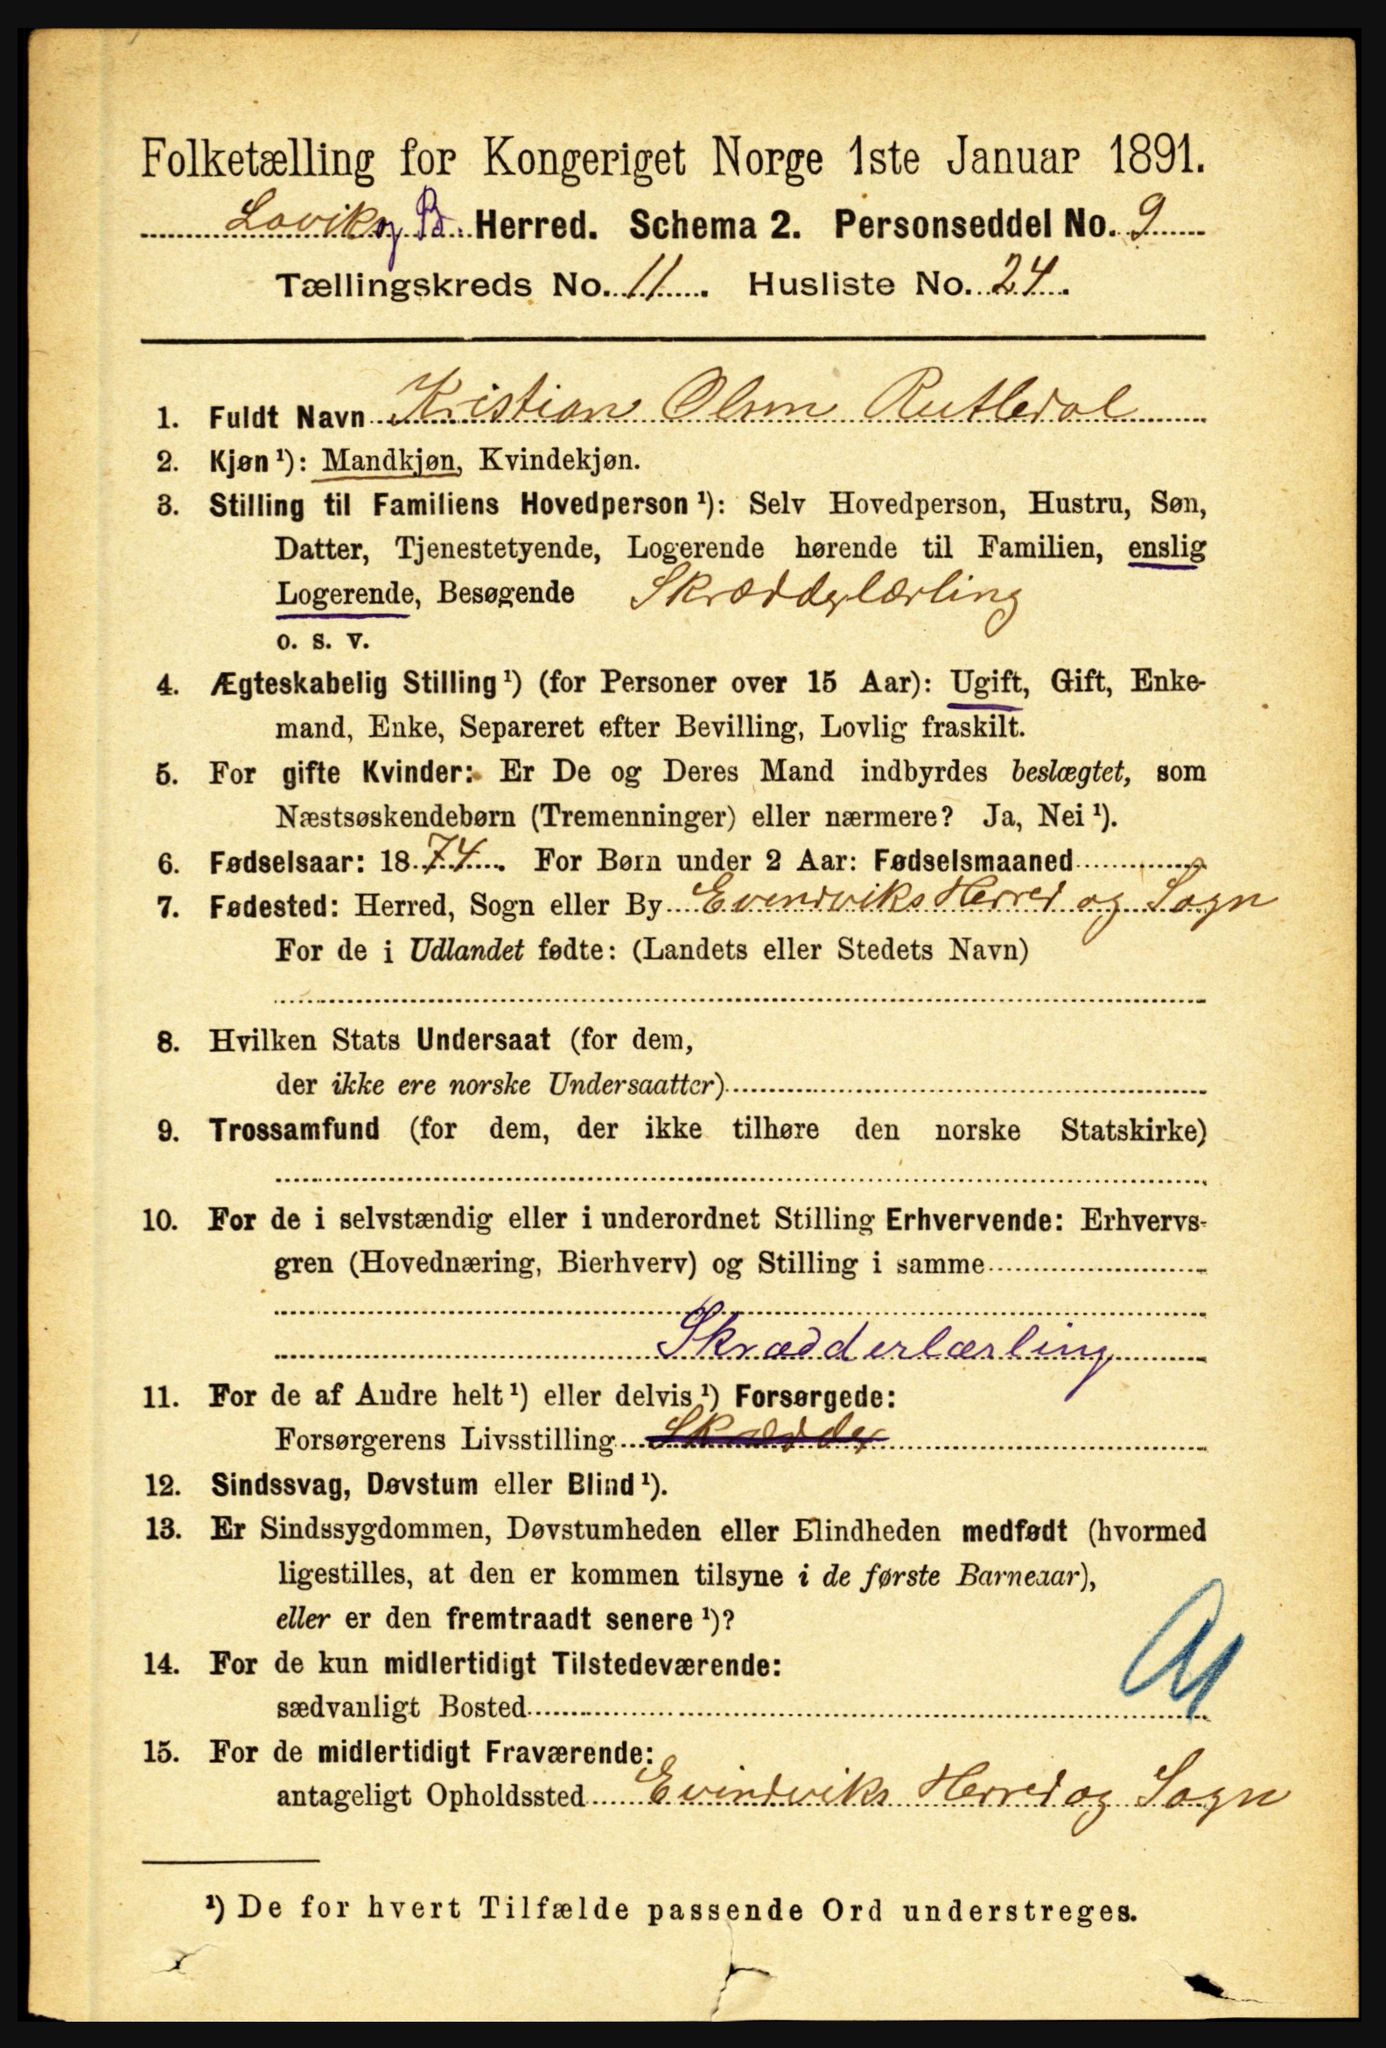 Folketælling for Kongeriget Norge 1ste Januar 1891.
Lavik og B. Herred. Schema 2. Personseddel No. 9
Tællingskreds No. 11. Husliste No. 24.
1. Fuldt Navn Kristian Olsen Rutledal
2. Kjøn ¹): Mandkjøn, Kvindekjøn.
3. Stilling til Familiens Hovedperson ¹): Selv Hovedperson, Hustru, Søn,
Datter, Tjenestetyende, Logerende hørende til Familien, enslig
Logerende, Besøgende Skrædderlærling
o. s. v.
4. Ægteskabelig Stilling ¹) (for Personer over 15 Aar): Ugift, Gift, Enke-
mand, Enke, Separeret efter Bevilling, Lovlig fraskilt.
5. For gifte Kvinder: Er De og Deres Mand indbyrdes beslægtet, som
Næstsøskendebørn (Tremenninger) eller nærmere? Ja, Nei ¹).
6. Fødselsaar: 1874. For Børn under 2 Aar: Fødselsmaaned
7. Fødested: Herred, Sogn eller By Evindviks Herred og Sogn
For de i Udlandet fødte: (Landets eller Stedets Navn)
8. Hvilken Stats Undersaat (for dem,
der ikke ere norske Undersaatter)
9. Trossamfund (for dem, der ikke tilhøre den norske Statskirke)
10. For de i selvstændig eller i underordnet Stilling Erhvervende: Erhvervs-
gren (Hovednæring, Bierhverv) og Stilling i samme
Skrædderlærling
11. For de af Andre helt ¹) eller delvis ¹) Forsørgede:
Forsørgerens Livsstilling Skrædder
12. Sindssvag, Døvstum eller Blind ¹).
13. Er Sindssygdommen, Døvstumheden eller Blindheden medfødt (hvormed
ligestilles, at den er kommen tilsyne i de første Barneaar),
eller er den fremtraadt senere ¹)?
14. For de kun midlertidigt Tilstedeværende:
sædvanligt Bosted
15. For de midlertidigt Fraværende:
antageligt Opholdssted Evindviks Herred og Sogn
¹) De for hvert Tilfælde passende Ord understreges.